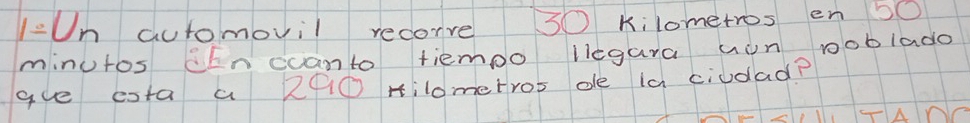 1=Un automovil recorre 30 Kilometros en 50
minutos ¿En cuanto tiempo llegara aun poblado
que esta a 290 Kilometros de la ciudad?